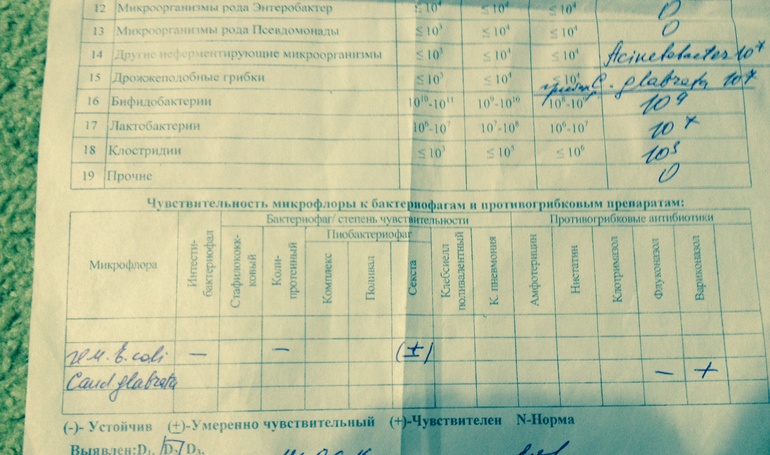 12 Микроорганизмы рода Энтеробактер ≤10⁴ ≤10⁴ ≤10⁴ 0
13 Микроорганизмы рода Псевдомонады ≤10³ ≤10⁴ ≤10⁴ 0
14 Другие неферментирующие микроорганизмы ≤10³ ≤10⁴ ≤10⁴ Acinetobacter 10⁷
15 Дрожжеподобные грибки ≤10³ ≤10⁴ ≤10⁴ грибы C. glabrata 10⁷
16 Бифидобактерии 10¹⁰-10¹¹ 10⁹-10¹⁰ 10⁸-10⁹ 10⁹
17 Лактобактерии 10⁶-10⁷ 10⁷-10⁸ 10⁶-10⁷ 10⁷
18 Клостридии ≤10³ ≤10⁵ ≤10⁶ 10³
19 Прочие 0
Чувствительность микрофлоры к бактериофагам и противогрибковым препаратам:
Бактериофаг/ степень чувствительности Противогрибковые антибиотики
Пиобактериофаг
Микрофлора Интести-бактериофал Стафилококк-ковый Коли-протейный Комплекс Поливал Секста Клебсиелл поливалентный К. пневмония Амфотерицин Нистатин Клотримазол Флуконазол Вариконазол
гем. E. coli – – (±)
Cand glabrata – +
(-)- Устойчив (±)-Умеренно чувствительный (+)-Чувствителен N-Норма
Выявлен:D₁, D₂, D₃,